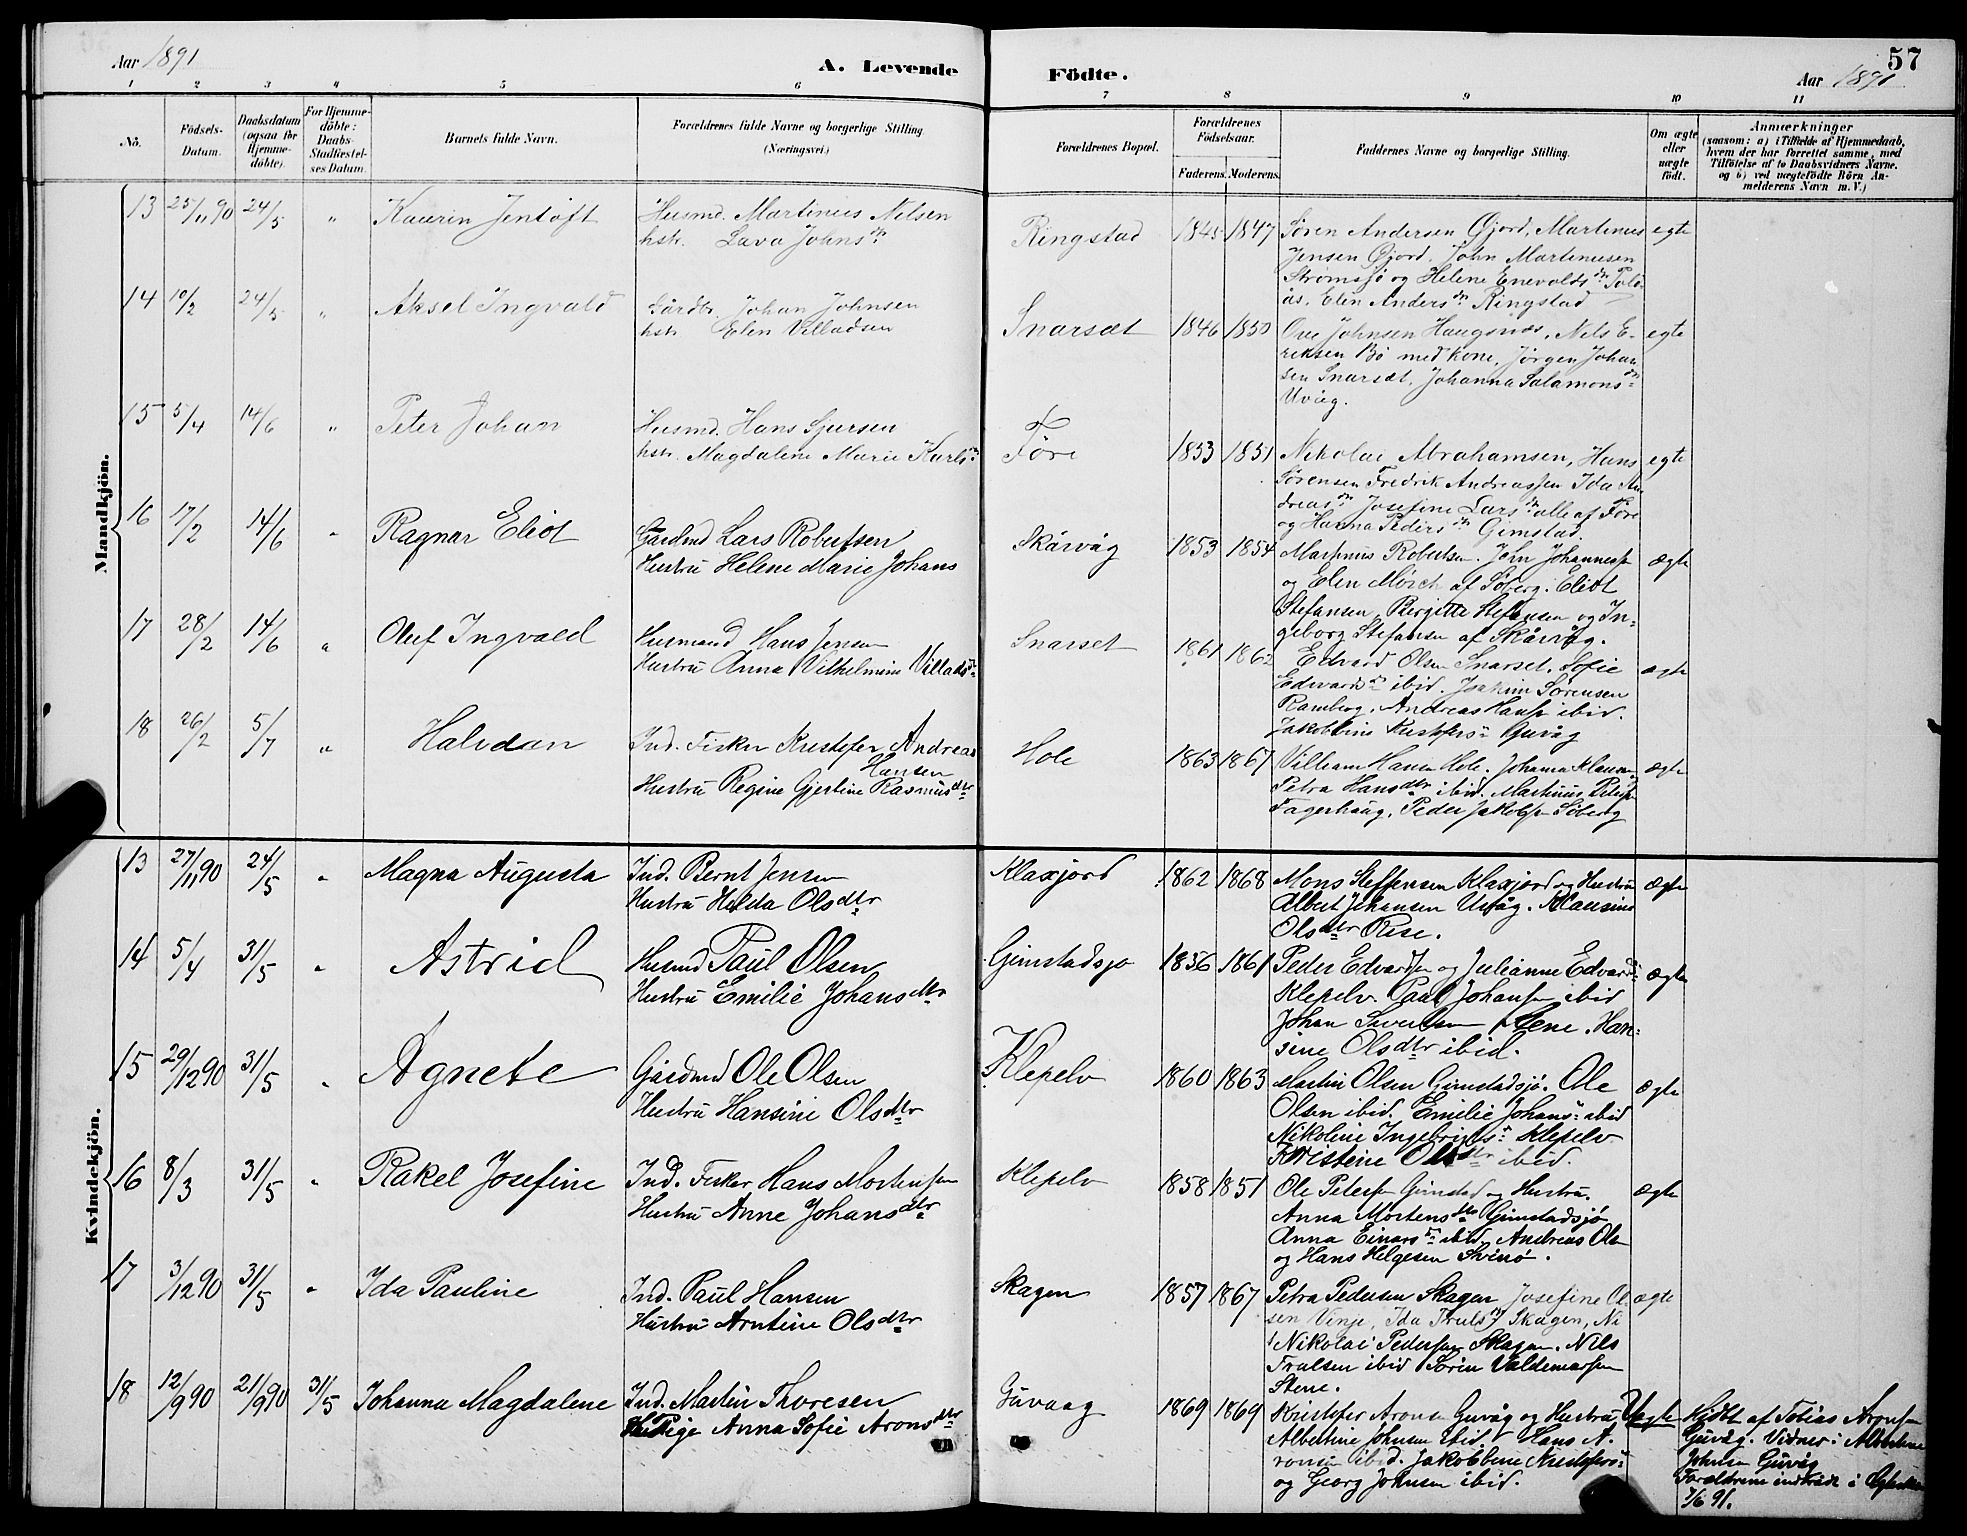 Aar 1891
A. Levende Födte.
57
Aar 1891
1 2 3 4 5 6 7 8 9 10 11
No. Födsels-Datum. Daabsdatum (ogsaa for Hjemme-döbte). For Hjemme-döbte: Daabs-Stadfestel-ses Datum. Barnets fulde Navn. Forældrenes fulde Navne og borgerlige Stilling (Næringsvei.) Forældrenes Bopæl. Forældrenes Födselsaar. Faderens. Moderens. Faddernes Navne og borgerlige Stilling. Om ægte eller uægte födt. Anmærkninger
(saasom: a) i Tilfælde af Hjemmedaab,
hvem der har forrettet samme, med
Tilföielse af to Daabsvidners Navne.
og b) ved uægtefödte Börn An-
melderens Navn m.V.)
Mandkjön.
13 25/11 90 24/5 " Kaurin Jentoft Husmd. Martinus Nilsen
hstr. Lava Johnsdr.
Ringstad 1845 1847 Søren Andersen Øjord, Martinus egte
Jensen Øjord, John Martinusen
Strømsjø og Helene Enevoldsdr
Elen Andersdr Ringstad
14 10/2 24/5 " Aksel Ingvald Gårdbr. Johan Johnsen
hstr Elen Villadsen
Snarset 1846 1850 Ove Johnsen Haugsnæs, Nils E- egte
riksen Bø med kone, Jørgen Johan
sen Snarset, Johanna Salamonsdr
Utvig.
15 5/4 14/6 " Peter Johan Husmd. Hans Sjursen
hstr. Magdalene Marie Karlsdr
Føre 1853 1851 Nikolai Abrahamsen, Hans egte
Sørensen Fredrik Andreassen Ida An
dreasdr Josefine Larsdr alle af Føre
og Hanna Pedersdr Gimstad.
16 17/2 14/6 " Ragnar Eliot Gårdmd Lars Robertsen
Hustru Helene Marie Johans
Skårvåg 1853 1854 Martinus Robertsen. John Johannessn ægte
og Elen Mörch af Söberg. Eliot
Stefansen, Bergitte Steffensen og In-
geborg Stefansen af Skårvåg.
17 28/2 14/6 " Oluf Ingvald Husmand Hans Jensen
Hustru Anna Vilhelmine Villadsdr
Snarset 1861 1862 Edvard Olsen Snarset. Sofie ægte
Edvardsdr ibid. Joakim Sörensen
Ramberg, Andreas Hansn ibid.
Jakobbine Kristfersdr Guvåg
18 26/2 5/7 " Halvdan Ind. Fisker Kristofer Andreas
Hansen
Hustru Regine Gjertine Rasmusdtr
Hole 1863 1867 Villiam Hansen Hole. Johanna Klausn ægte
Petra Hansdtr ibid. Martinus Petersn
Fagerhaug, Peder Jakobsn Söberg
Kvindekjön.
13 27/11 90 24/5 " Magna Augusta Ind. Bernt Jensen
Hustru Hilda Olsdtr
Klaxjord 1862 1868 Mons Steffensen Klaxjord og Hustru ægte
Albert Johansen Utvåg. Klausine
Olsdtr Rise.
14 5/4 31/5 " Astrid Husmd Paul Olsen
Hustru Emilie Johansdtr
Gimstadsjo 1836 1861 Peder Edvardsen og Julianne Edvards ægte
Klepelv. Paal Johansen ibid
Johan Sivertsen Stene. Han-
sine Olsdtr ibid.
15 29/12 90 31/5 " Agnete Gårdmd Ole Olsen
Hustru Hansine Olsdtr
Klepelv 1860 1863 Martin Olsen Gimstadsjö. Ole ægte
Olsen ibid. Emilie Johansdr ibid
Nikoline Ingebrigtsdr Klepelv
Kristine Olsdtr ibid.
16 8/3 31/5 " Rakel Josefine Ind. Fisker Hans Mortensen
Hustru Anne Johansdtr
Klepelv 1858 1851 Ole Petersn Gimstad og Hustru. ægte
Anna Mortensdtr Gimstadsjö
Anna Einarsdr ibid. Andreas Olsn
og Hans Helgesen Svinö.
17 3/12 90 31/5 " Ida Pauline Ind. Paul Hansen
Hustru Arntine Olsdtr
Skagen 1857 1867 Petra Pedersen Skagen Josefine Ol- ægte
sen Vinje, Ida Trulsdr Skagen, Ni
Nikolai Pedersen Skagen. Nils
Trulsen ibid Sören Valdemarsen
Stene.
18 12/9 90 21/9 90 31/5 Johanna Magdalene Ind. Martin Thoresen
Pige Anna Sofie Aronsdtr
Guvaag 1869 1869 Kristofer Aronsn Guvåg og Hustru Uægte Hjdbt af Tobias Aronsn
Albertine Johnsen ibid. Hans A- Guvåg. Vidner: Albertine
ronsen ibid. Jakobbine Kristofersdr Johnsen Guvåg
og Georg Johnsen ibid. Forældrene indtrådt i Ægteskab
7/6 91.